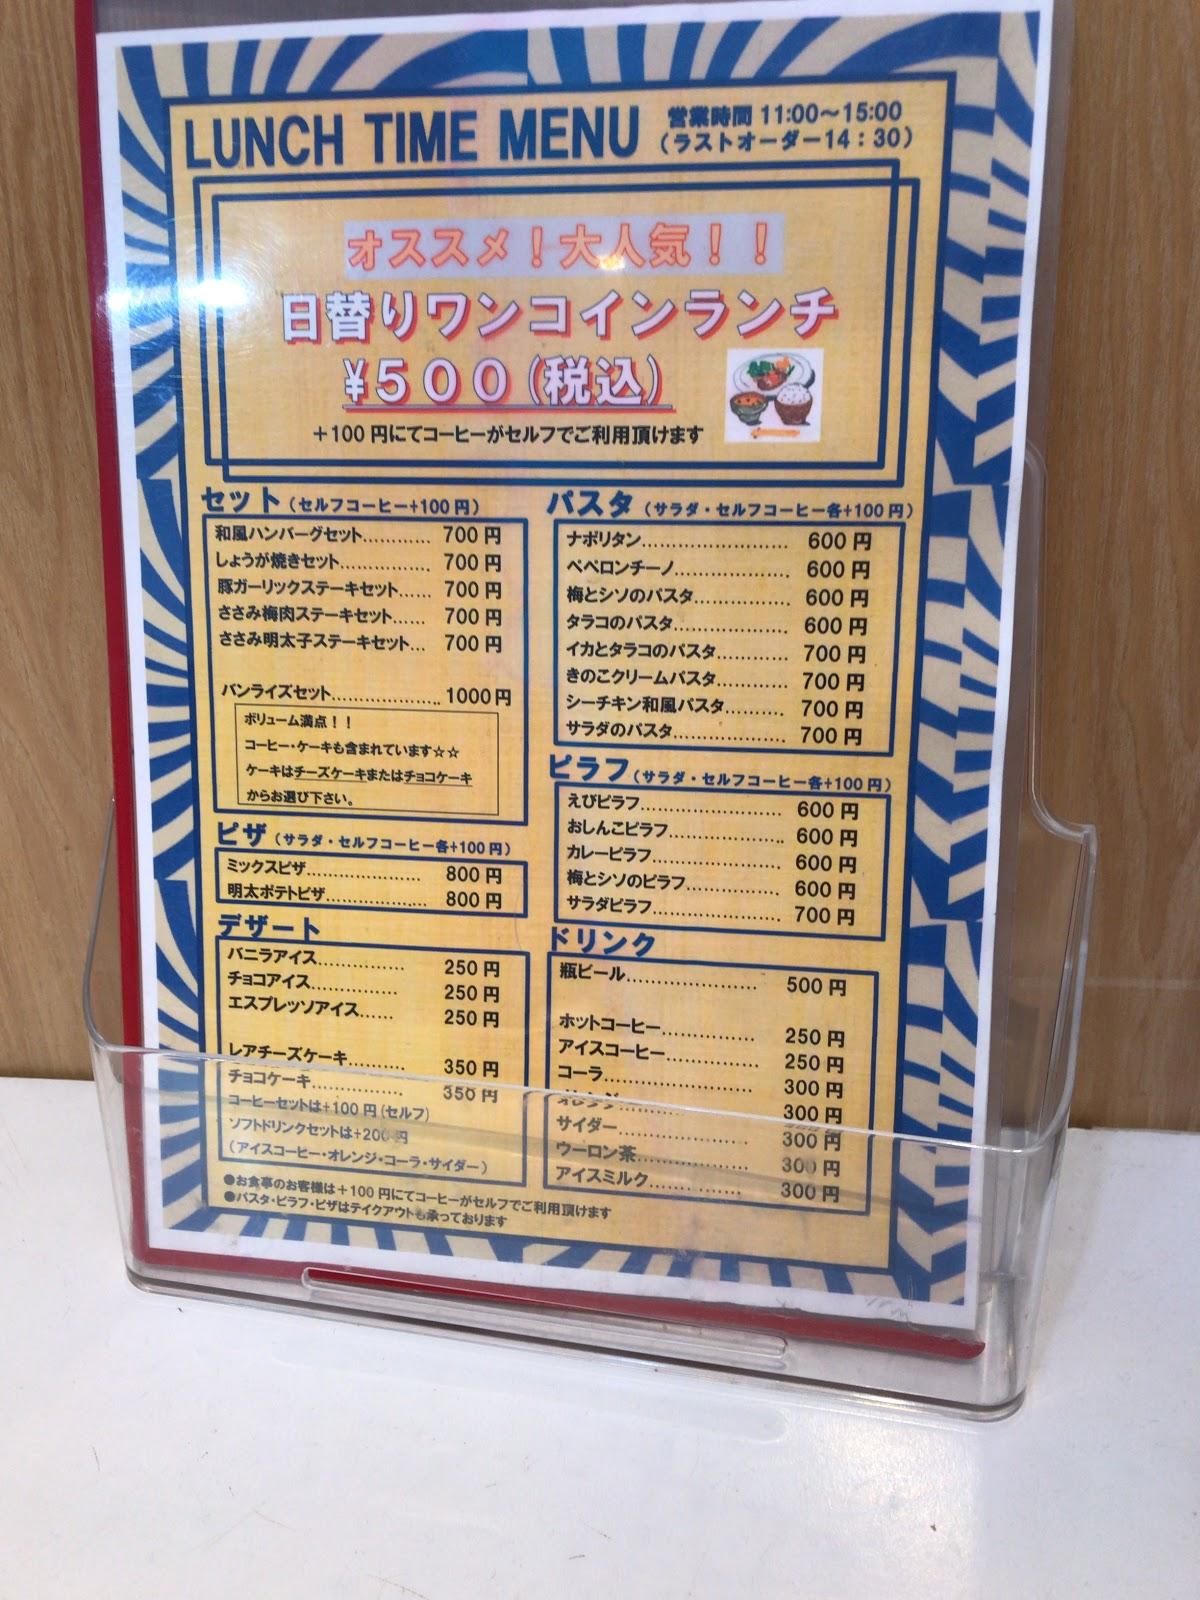 LUNCH TIME MENU
営業時間 11:00～15:00
（ラストオーダー14：30）
オススメ！大人気！！
日替りワンコインランチ
¥５００（税込）
＋100円にてコーヒーがセルフでご利用頂けます
セット（セルフコーヒー+100円）
和風ハンバーグセット............ 700円
しょうが焼きセット................ 700円
豚ガーリックステーキセット...... 700円
ささみ梅肉ステーキセット...... 700円
ささみ明太子ステーキセット... 700円
バンライズセット.................... 1000円
ボリューム満点！！
コーヒー・ケーキも含まれています☆☆
ケーキはチーズケーキまたはチョコケーキ
からお選び下さい。
ピザ（サラダ・セルフコーヒー各+100円）
ミックスピザ..................... 800円
明太ポテトピザ................... 800円
デザート
バニラアイス................ 250円
チョコアイス................ 250円
エスプレッソアイス...... 250円
レアチーズケーキ.......... 350円
チョコケーキ................. 350円
コーヒーセットは+100円（セルフ）
ソフトドリンクセットは+200円
（アイスコーヒー・オレンジ・コーラ・サイダー）
パスタ（サラダ・セルフコーヒー各+100円）
ナポリタン.......................... 600円
ペペロンチーノ..................... 600円
梅とシソのパスタ................. 600円
タラコのパスタ..................... 600円
イカとタラコのパスタ............. 700円
きのこクリームパスタ............. 700円
シーチキン和風パスタ.......... 700円
サラダのパスタ.................... 700円
ピラフ（サラダ・セルフコーヒー各+100円）
えびピラフ.......................... 600円
おしんこピラフ..................... 600円
カレーピラフ....................... 600円
梅とシソのピラフ................. 600円
サラダピラフ....................... 700円
ドリンク
瓶ビール....................... 500円
ホットコーヒー................ 250円
アイスコーヒー................ 250円
コーラ.......................... 300円
オレンジ....................... 300円
サイダー....................... 300円
ウーロン茶.................... 300円
アイスミルク................ 300円
●お食事のお客様は＋100円にてコーヒーがセルフでご利用頂けます
●パスタ・ピラフ・ピザはテイクアウトも承っております